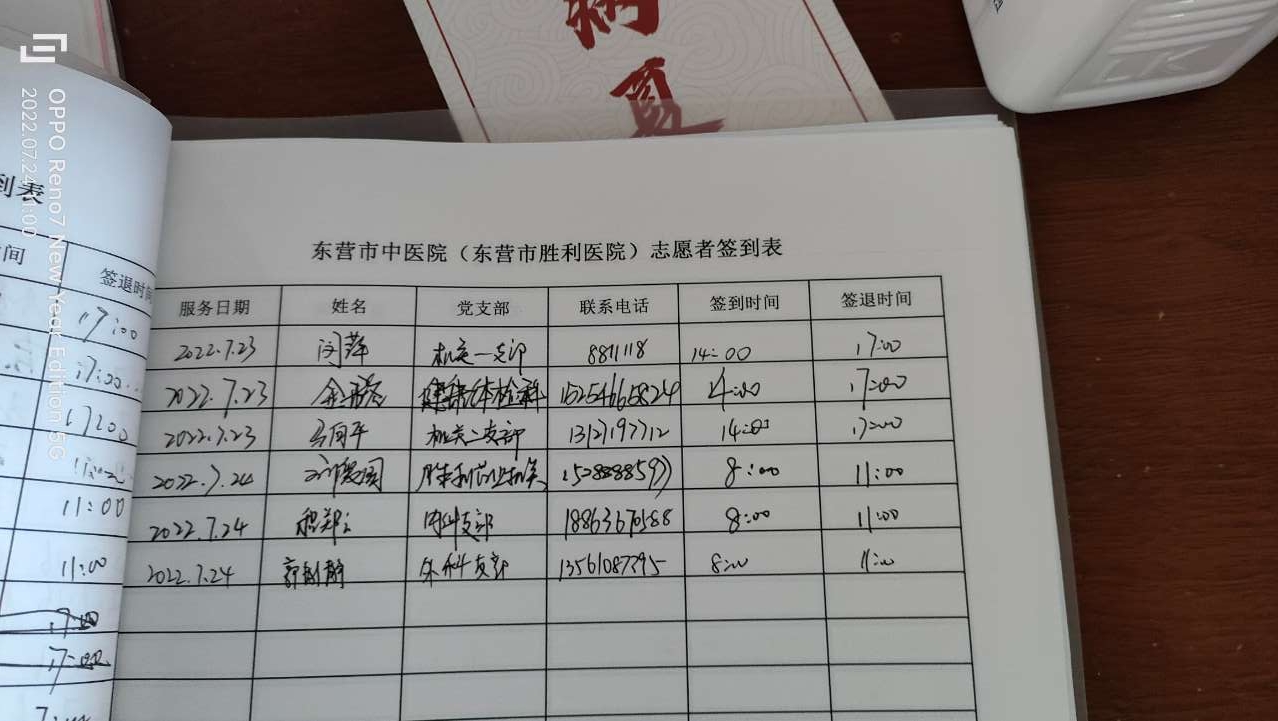 OPPO Reno7 New Year Edition 5G
2022.07.24 11:00
病
夏
到表
间
签退时间
17:00
17:00
17:00
11:00
11:00
东营市中医院（东营市胜利医院）志愿者签到表
服务日期 姓名 党支部 联系电话 签到时间 签退时间
2022.7.23 闵萍 机关一支部 8811118 14:00 17:00
2022.7.23 健康体检科 15254665824 14:00 17:00
2022.7.23 马向平 机关二支部 14:00 17:00
2022.7.24 8:00 11:00
2022.7.24 程郑 内科支部 18863670588 8:00 11:00
2022.7.24 外科支部 13561087795 8:00 11:00